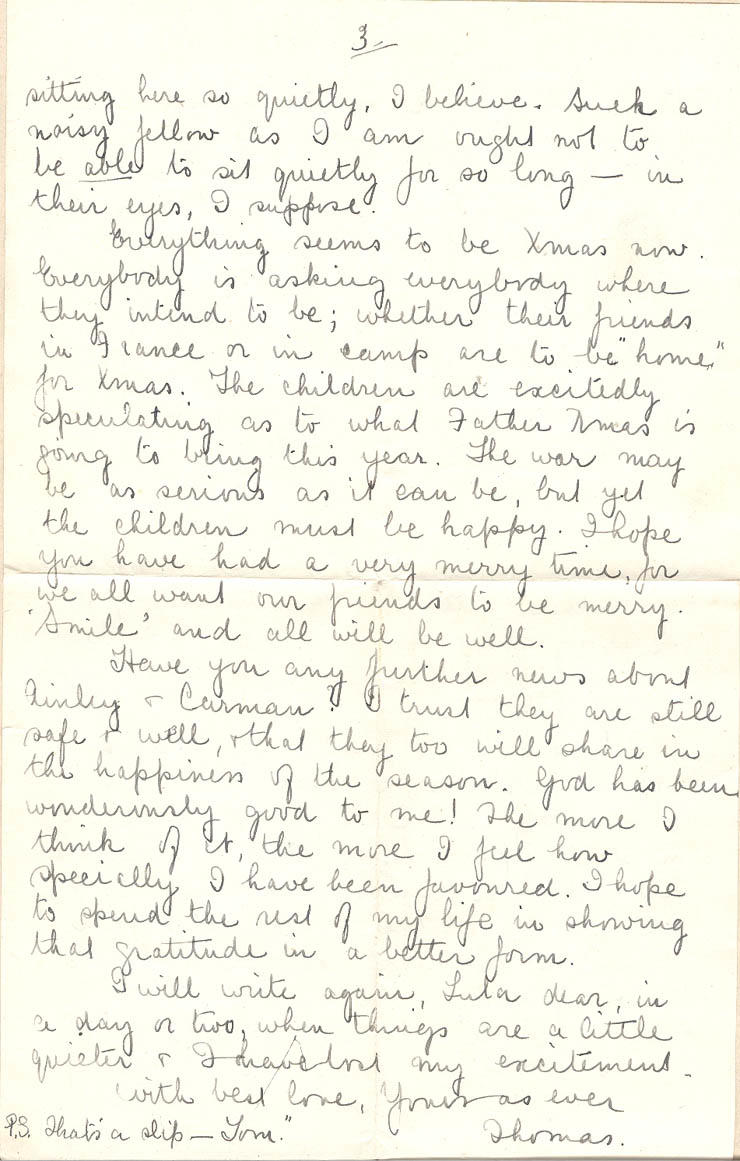 3.
sitting here so quietly, I believe. Such a
noisy fellow as I am ought not to
be able to sit quietly for so long — in
their eyes, I suppose.
Everything seems to be Xmas now.
Everybody is asking everybody where
they intend to be; whether their friends
in France or in camp are to be "home"
for Xmas. The children are excitedly
speculating as to what Father Xmas is
going to bring this year. The war may
be as serious as it can be, but yet
the children must be happy. I hope
you have had a very merry time, for
we all want our friends to be merry.
'Smile' and all will be well.
Have you any further news about
Finley & Carman? I trust they are still
safe & well, & that they too will share in
the happiness of the season. God has been
wonderously good to me! The more I
think of it, the more I feel how
specially I have been favoured. I hope
to spend the rest of my life in showing
that gratitude in a better form.
I will write again, Lula dear, in
a day or two, when things are a little
quieter & I have lost my excitement.
With best love, Yours as ever
Thomas.
P.S. That's a slip — Tom."